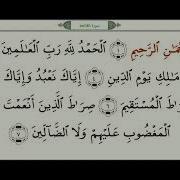 سورة الفاتحة
ـمَـٰنِ ٱلرَّحِيمِ ١ ٱلْحَمْدُ لِلَّهِ رَبِّ ٱلْعَـٰلَمِينَ
مَـٰلِكِ يَوْمِ ٱلدِّينِ ٤ إِيَّاكَ نَعْبُدُ وَإِيَّاكَ
ٱلْمُسْتَقِيمَ ٦ صِرَٰطَ ٱلَّذِينَ أَنْعَمْتَ
ٱلْمَغْضُوبِ عَلَيْهِمْ وَلَا ٱلضَّآلِّينَ ٧